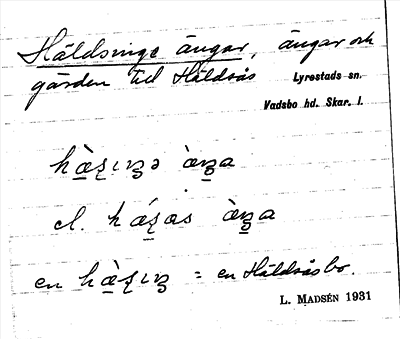 Häldsinge ängar, ängar och
gärden till Häldsås Lyrestads sn.
Vadsbo hd. Skar. l.
hæ̀ʂɩŋə æ̀ŋa
el. hǽʂas æ̀ŋa
en hæ̀ʂɩŋ = en Häldsåsbo.
L. MADSÉN 1931